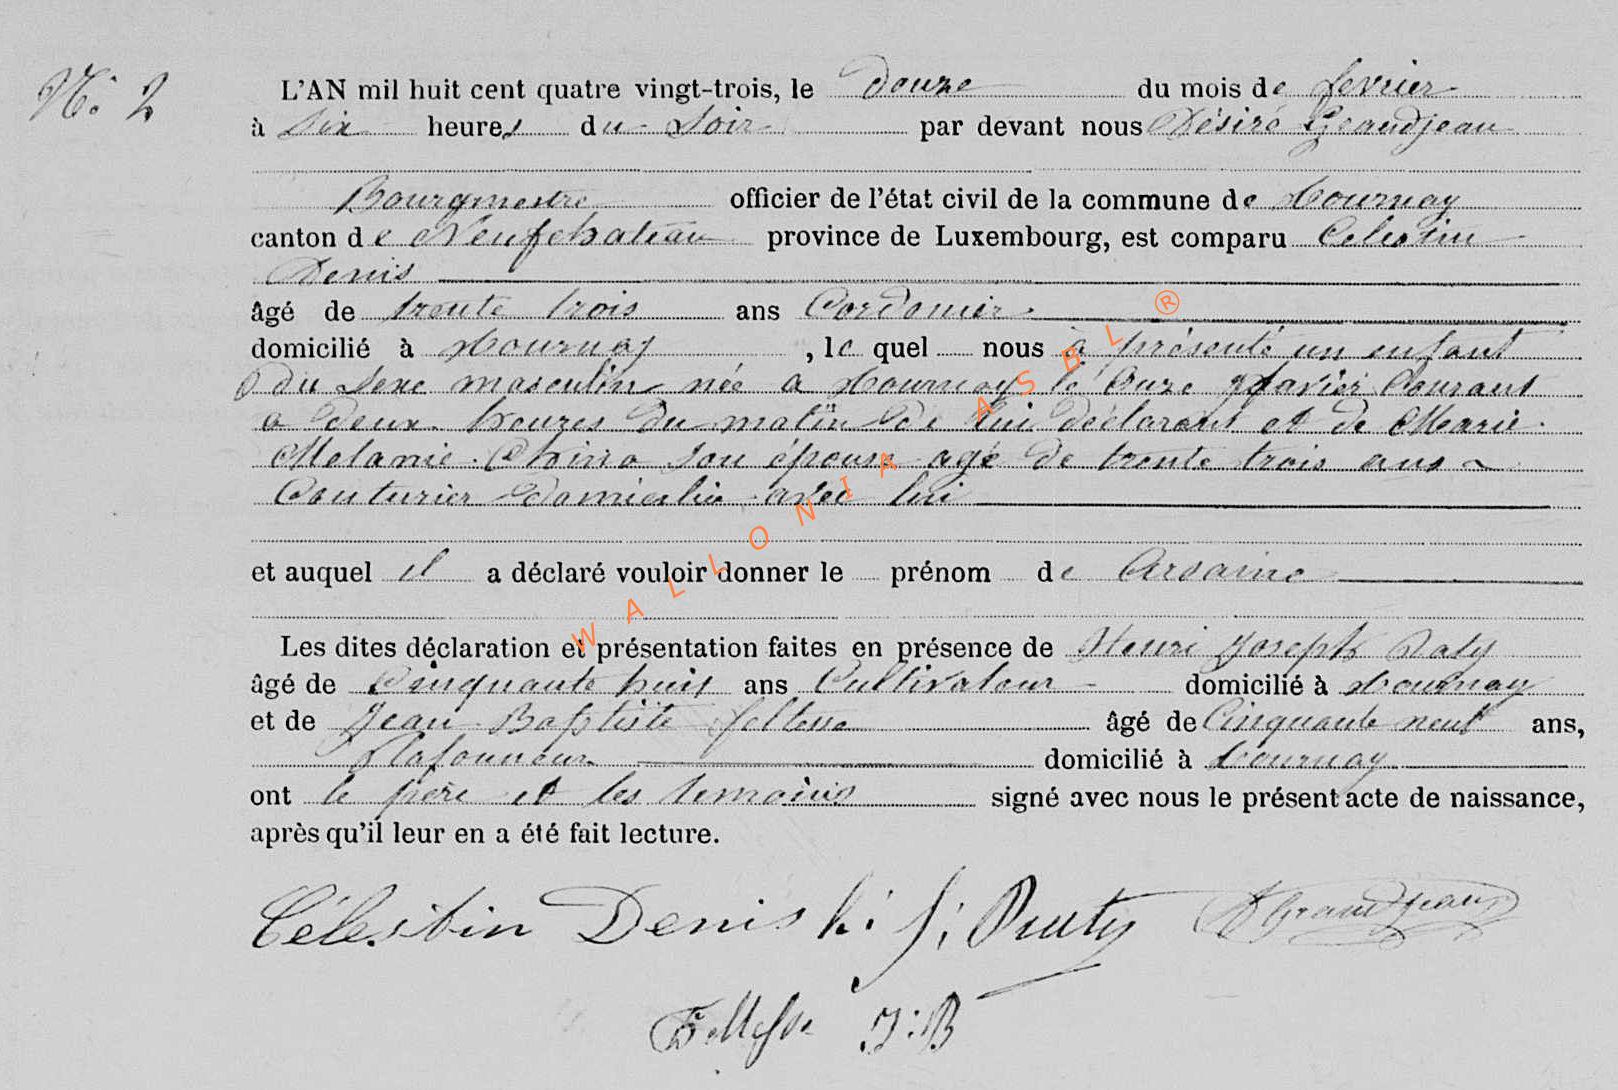 N° 2
L'AN mil huit cent quatre vingt-trois, le douze du mois de fevrier
à Six heures du Soir par devant nous Désiré Grandjean
Bourgmestre officier de l'état civil de la commune de Tournay
canton de Neufchateau province de Luxembourg, est comparu Celestin
Denis
âgé de trente trois ans Cordonier
domicilié à Tournay, le quel nous à présenté un enfant
du Sexe masculin née a Tournay le Courant
a deux heures du matin de lui déclarant et de Marie
Melanie son épouse agé de trente trois ans
Couturier domicilié avec lui
et auquel il a déclaré vouloir donner le prénom de
Les dites déclaration et présentation faites en présence de Henri Joseph
âgé de Cinquante huit ans Cultivateur domicilié à Tournay
et de Jean Baptiste fellesse âgé de Cinquante neuf ans,
Plafonneur domicilié à Tournay
ont le père et les temoins signé avec nous le présent acte de naissance,
après qu'il leur en a été fait lecture.
Célestin Denis h: j: DGrandjean
Fellesse J:B
WALLONIA ASBL ®